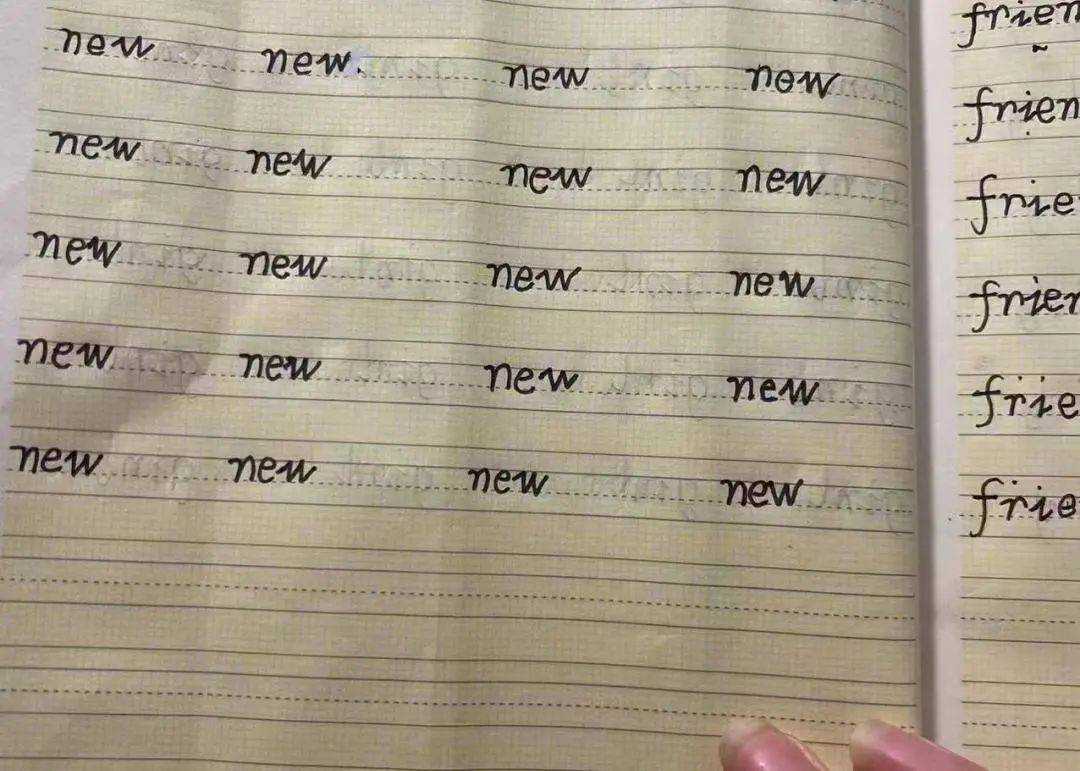 new new. new now
new new new new
new new new new
new new new new
new new new new
frien
frien
frie
frien
frie
frie